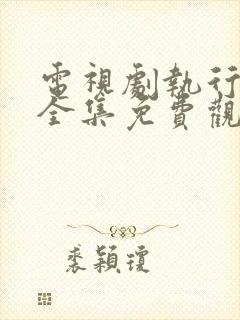 電視劇執行
全集免費觀
裘穎瓊